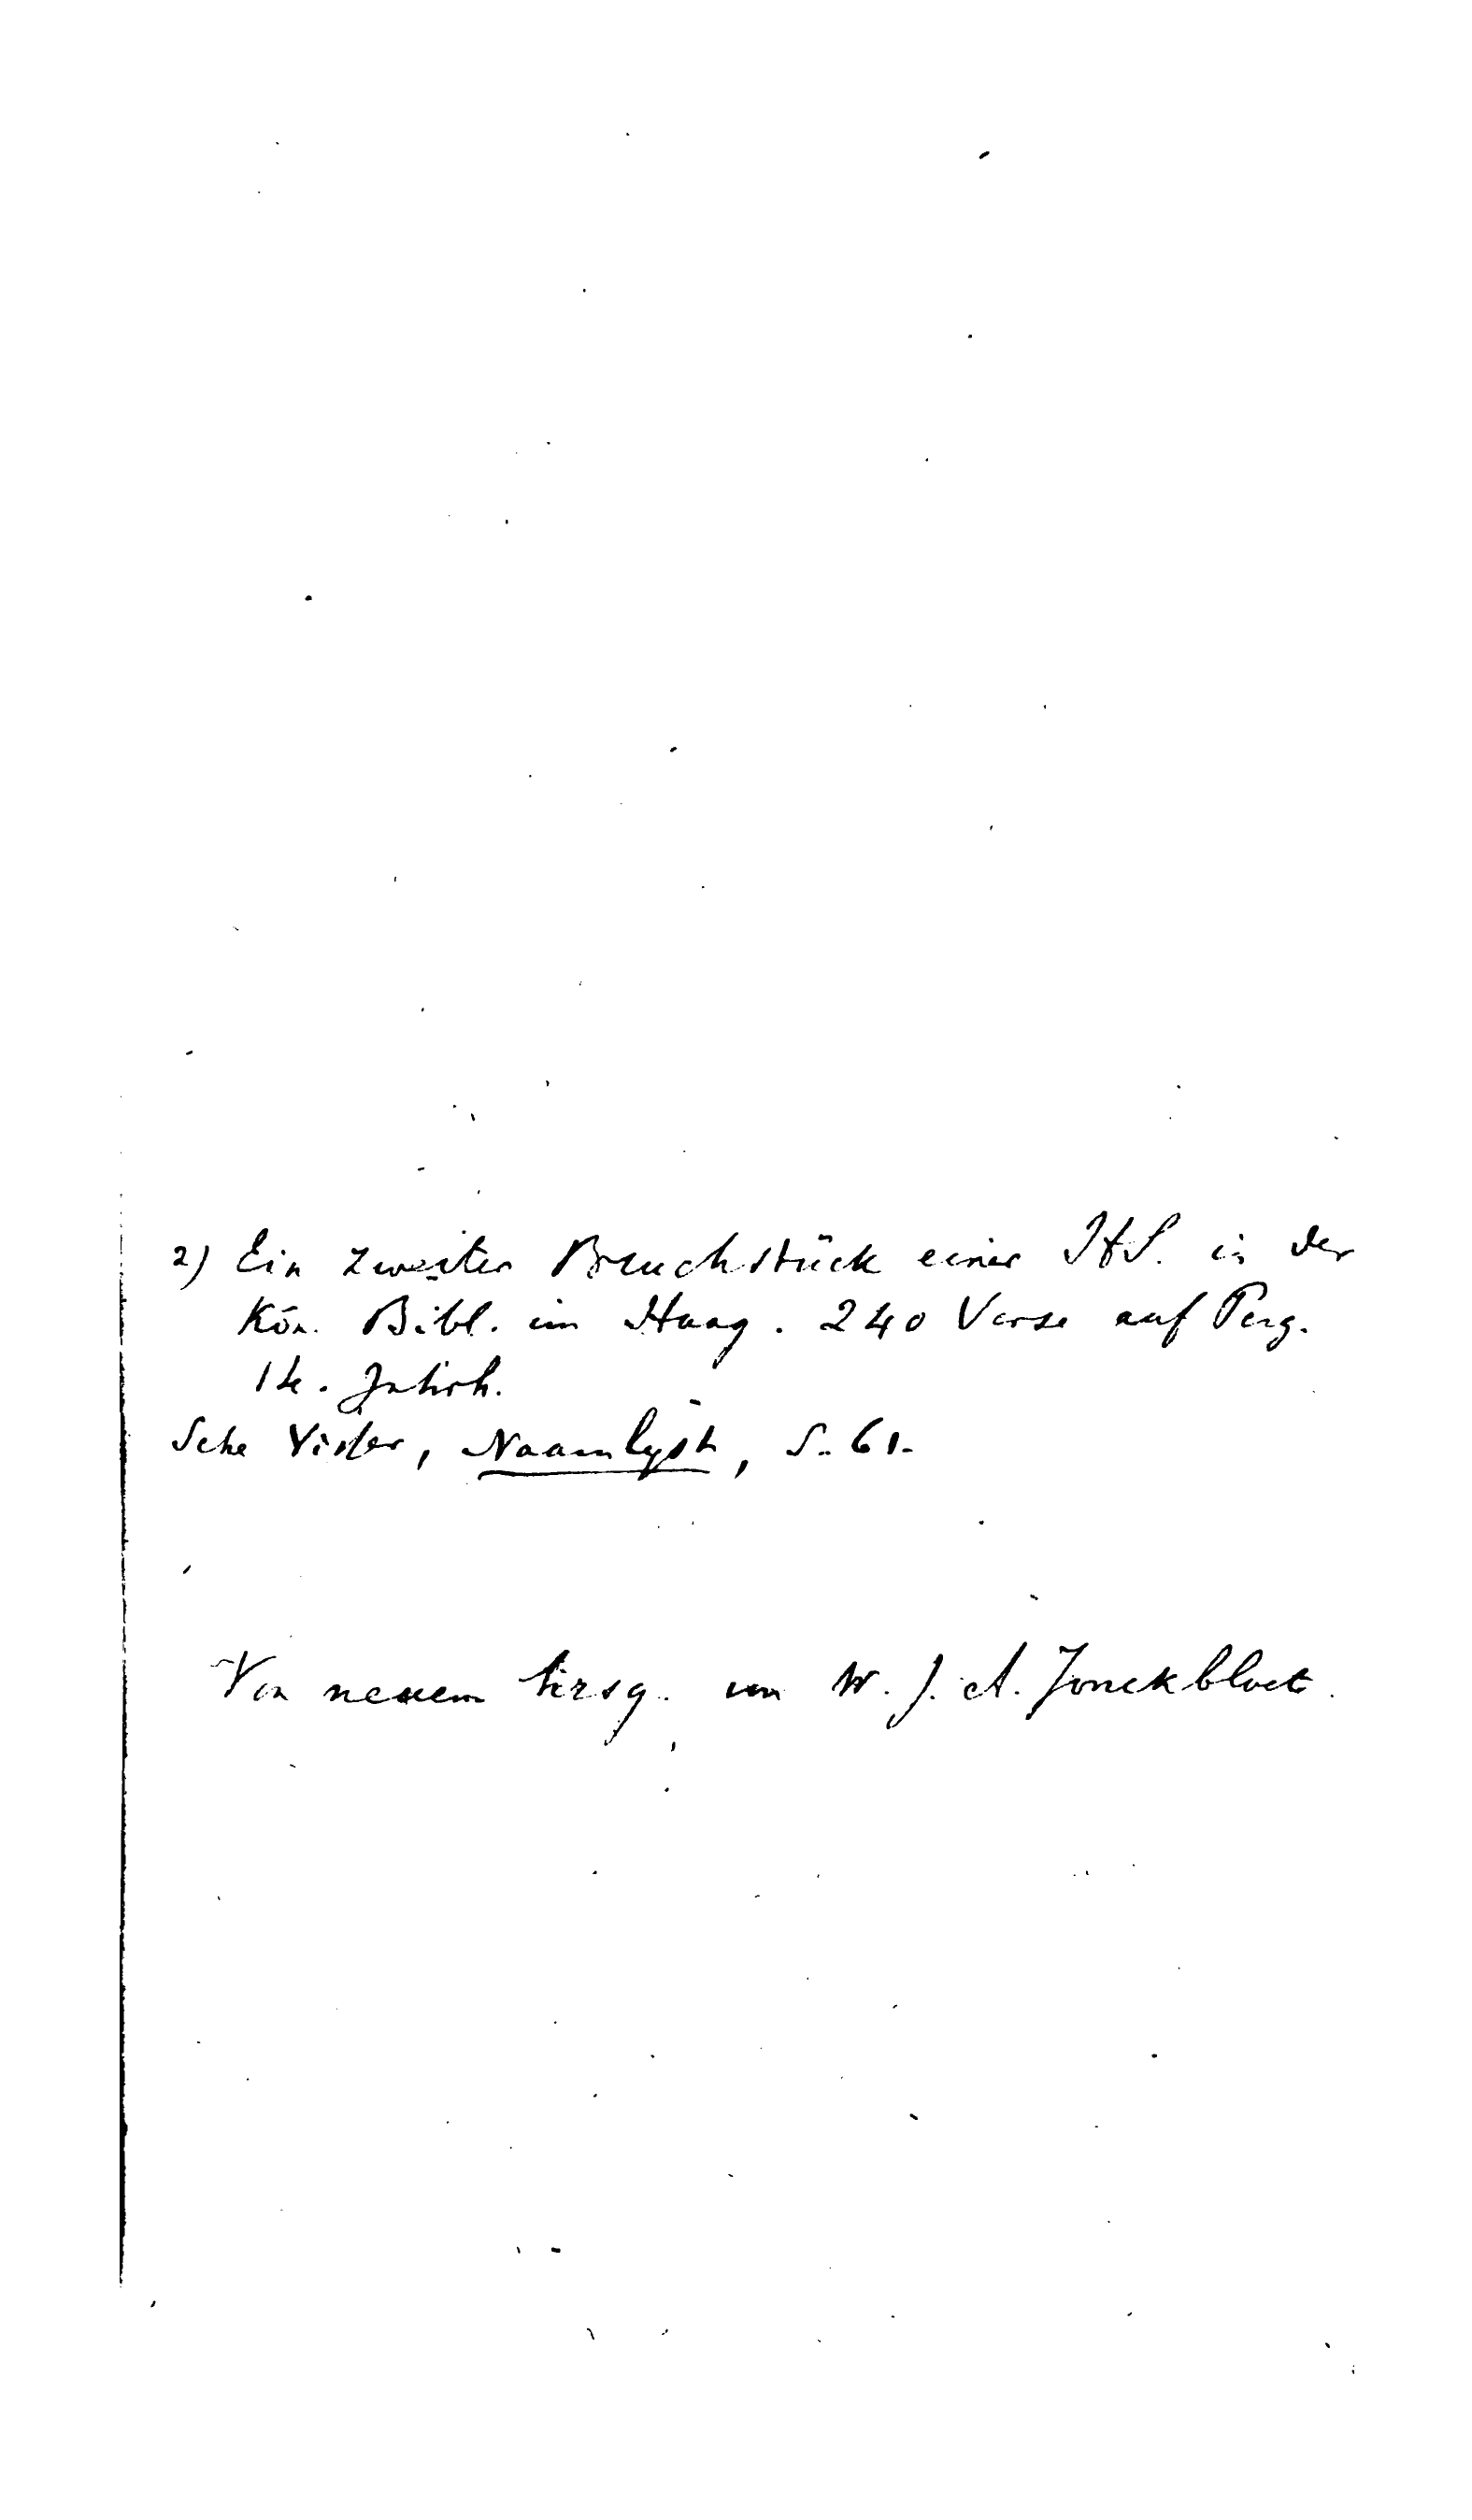 2) Ein zweites Bruchstück einer Hs. in der
Kön. Bibl. im Haag. 240 Verse auf Perg.
14. Jahrh.
Sehe Visser, Naamlyst, S. 61.
Von neuem hrsg. von W. J. A. Jonckbloet.